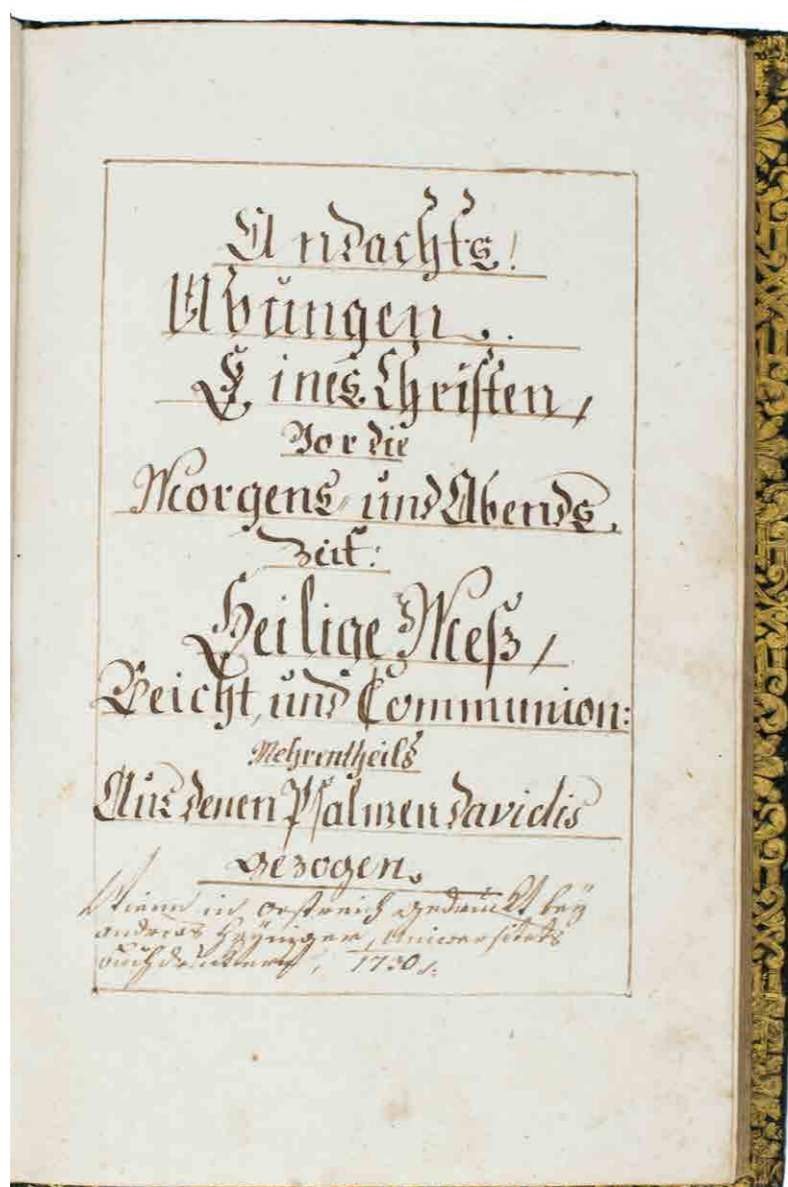 Andachts!
Übungen.
Eines Christen /
Vor die
Morgens- und Abends.
Zeit:
Heilige Meß /
Beicht, und Communion:
Mehrentheils
Aus denen Psalmen davidis
gezogen.
Wienn in oestreich gedruckt bey
andreas Heÿniger, Universitets
buchdruckern, 1730.